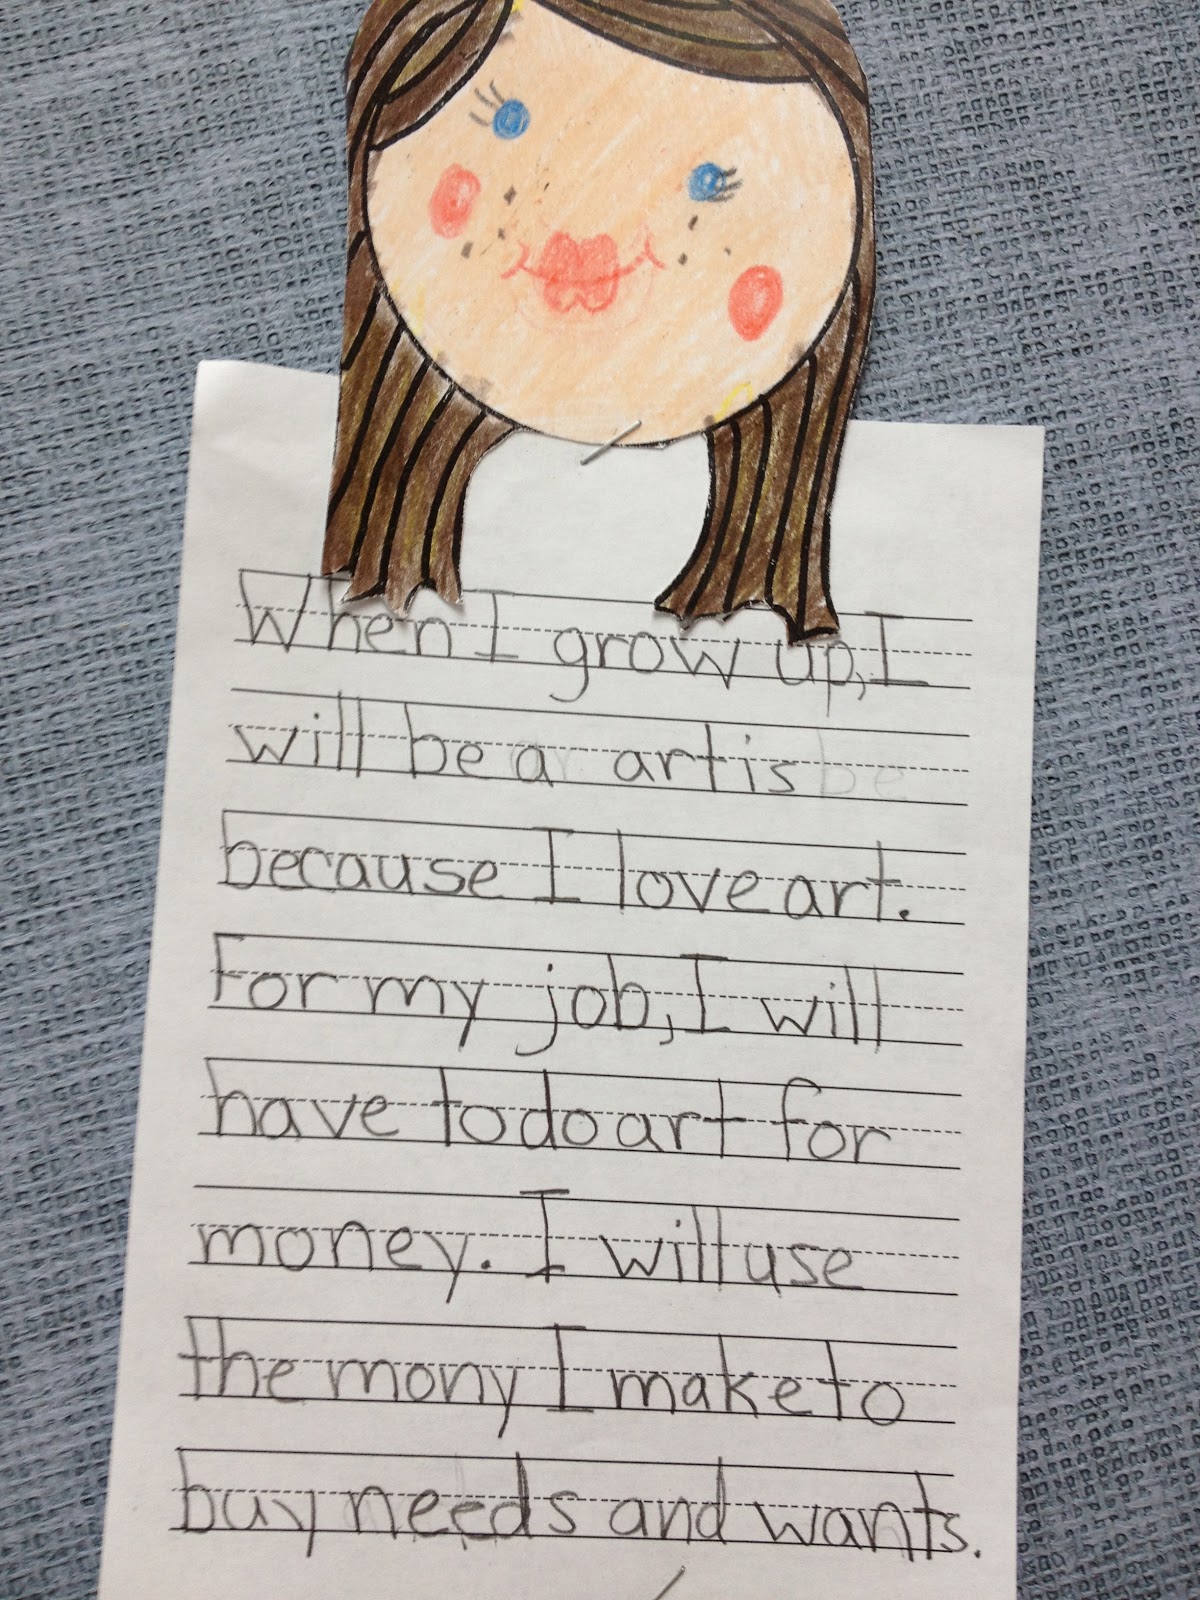 When I grow up, I
will be a artis
because I love art.
For my job, I will
have to do art for
money. I will use
the mony I make to
buy needs and wants.